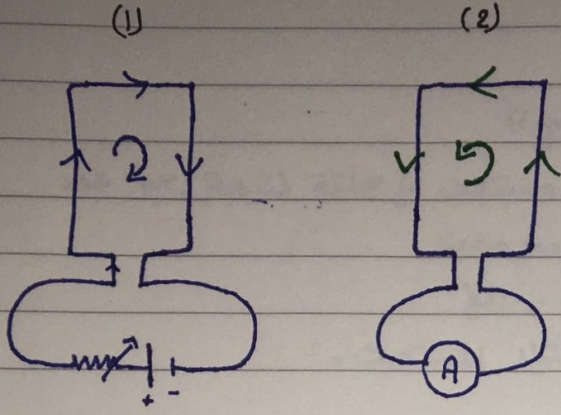 (1) (2)
A
+ -